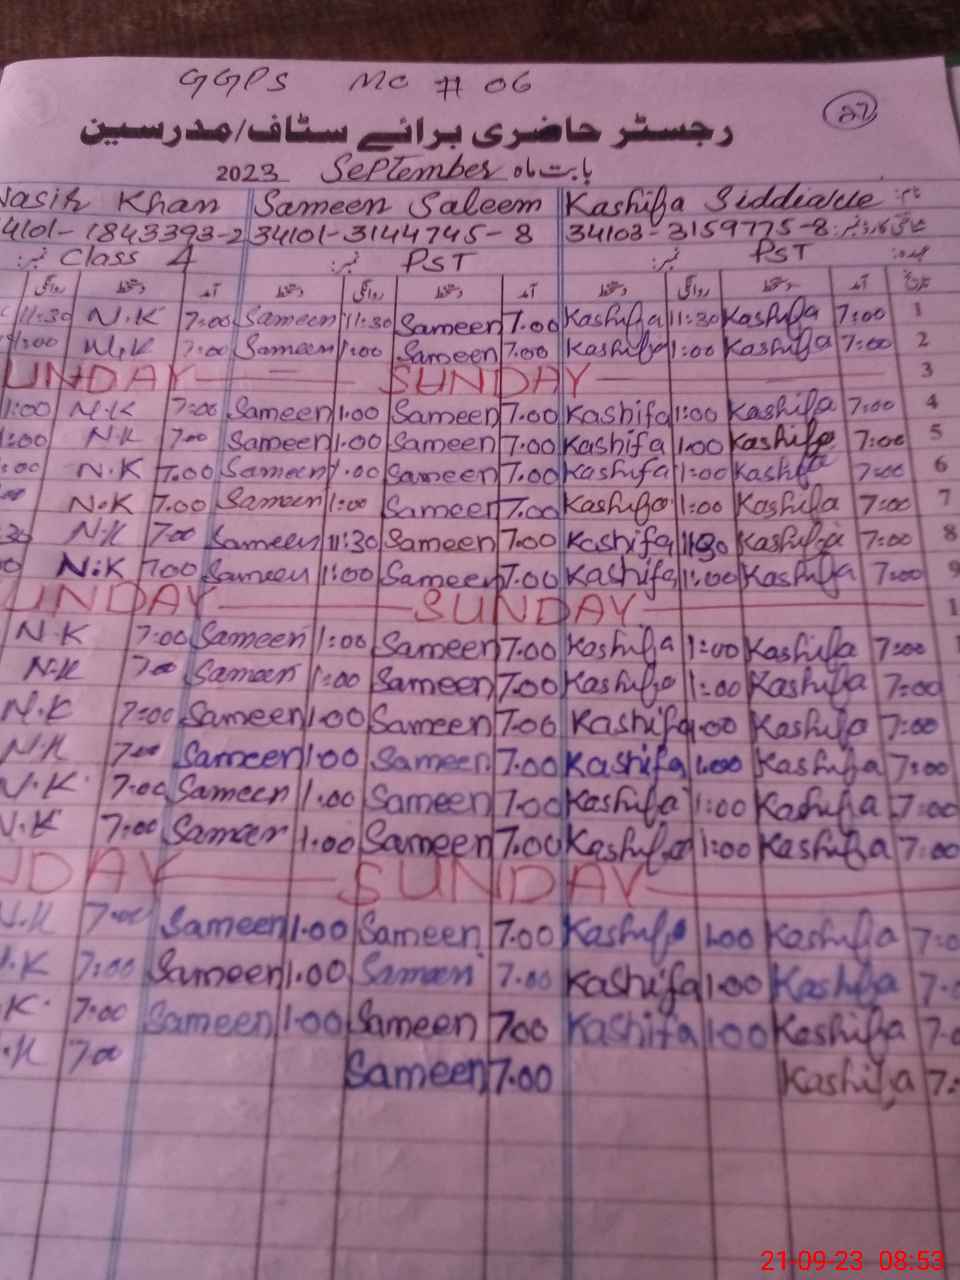 GGPS MC # 06
27
رجسٹر حاضری برائے سٹاف/مدرسین
بابت ماہ September 2023
نام: Kashifa Siddique Sameen Saleem Nasir Khan
34103-3159775-8 34101-3144745-8 4101-1843393-2
عہدہ: PST نمبر: PST نمبر: Class 4 نمبر:
تاریخ آمد دستخط روانگی دستخط آمد دستخط روانگی دستخط آمد دستخط روانگی
11:30 N.K 7:00 Sameen 11:30 Sameen 7.00 Kashifa 11:30 Kashifa 7:00 1
1:00 N.K 7:00 Sameen 1:00 Sameen 7.00 Kashifa 1:00 Kashifa 7:00 2
UNDAY SUNDAY 3
1:00 N.K 7:00 Sameen 1.00 Sameen 7.00 Kashifa 1:00 Kashifa 7:00 4
1:00 N.K 7:00 Sameen 1.00 Sameen 7.00 Kashifa 1.00 Kashifa 7:00 5
:00 N.K 7.00 Sameen 1.00 Sameen 7.00 Kashifa 1:00 Kashifa 7:00 6
N.K 7.00 Sameen 1:00 Sameen 7.00 Kashifa 1:00 Kashifa 7:00 7
30 N.K 7:00 Sameen 11:30 Sameen 7.00 Kashifa 11:30 Kashifa 7:00 8
0 N.K 7.00 Sameen 1:00 Sameen 7.00 Kashifa 1:00 Kashifa 7:00 9
UNDAY SUNDAY 1
N.K 7:00 Sameen 1:00 Sameen 7.00 Kashifa 1:00 Kashifa 7:00
N.K 7:00 Sameen 1:00 Sameen 7.00 Kashifa 1:00 Kashifa 7:00
N.K 7:00 Sameen 1.00 Sameen 7.00 Kashifa 1.00 Kashifa 7:00
N.K 7:00 Sameen 1.00 Sameen 7.00 Kashifa 1.00 Kashifa 7:00
N.K 7:00 Sameen 1.00 Sameen 7.00 Kashifa 1:00 Kashifa 7:00
N.K 7:00 Sameen 1.00 Sameen 7.00 Kashifa 1:00 Kashifa 7:00
NDAY SUNDAY
N.K 7:00 Sameen 1.00 Sameen 7.00 Kashifa 1.00 Kashifa 7:0
.K 7:00 Sameen 1.00 Sameen 7.00 Kashifa 1.00 Kashifa 7.
K 7:00 Sameen 1.00 Sameen 700 Kashifa 1.00 Kashifa 7.0
.K 7:00 Sameen 7.00 Kashifa 7:
21-09-23 08:53